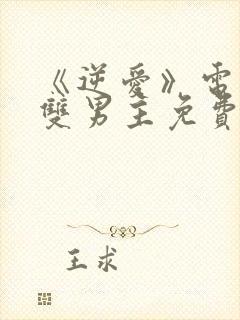 《逆愛》電
雙男主免費
王求